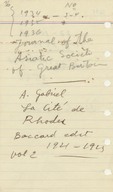 1934 - J. r.
1935 "
1936
Journal of the
Asiatic Societ
of Great Britain
A. Gabriel
"La Cité de
Rhodes
Boccard edit
1921 - 1923
vol 2